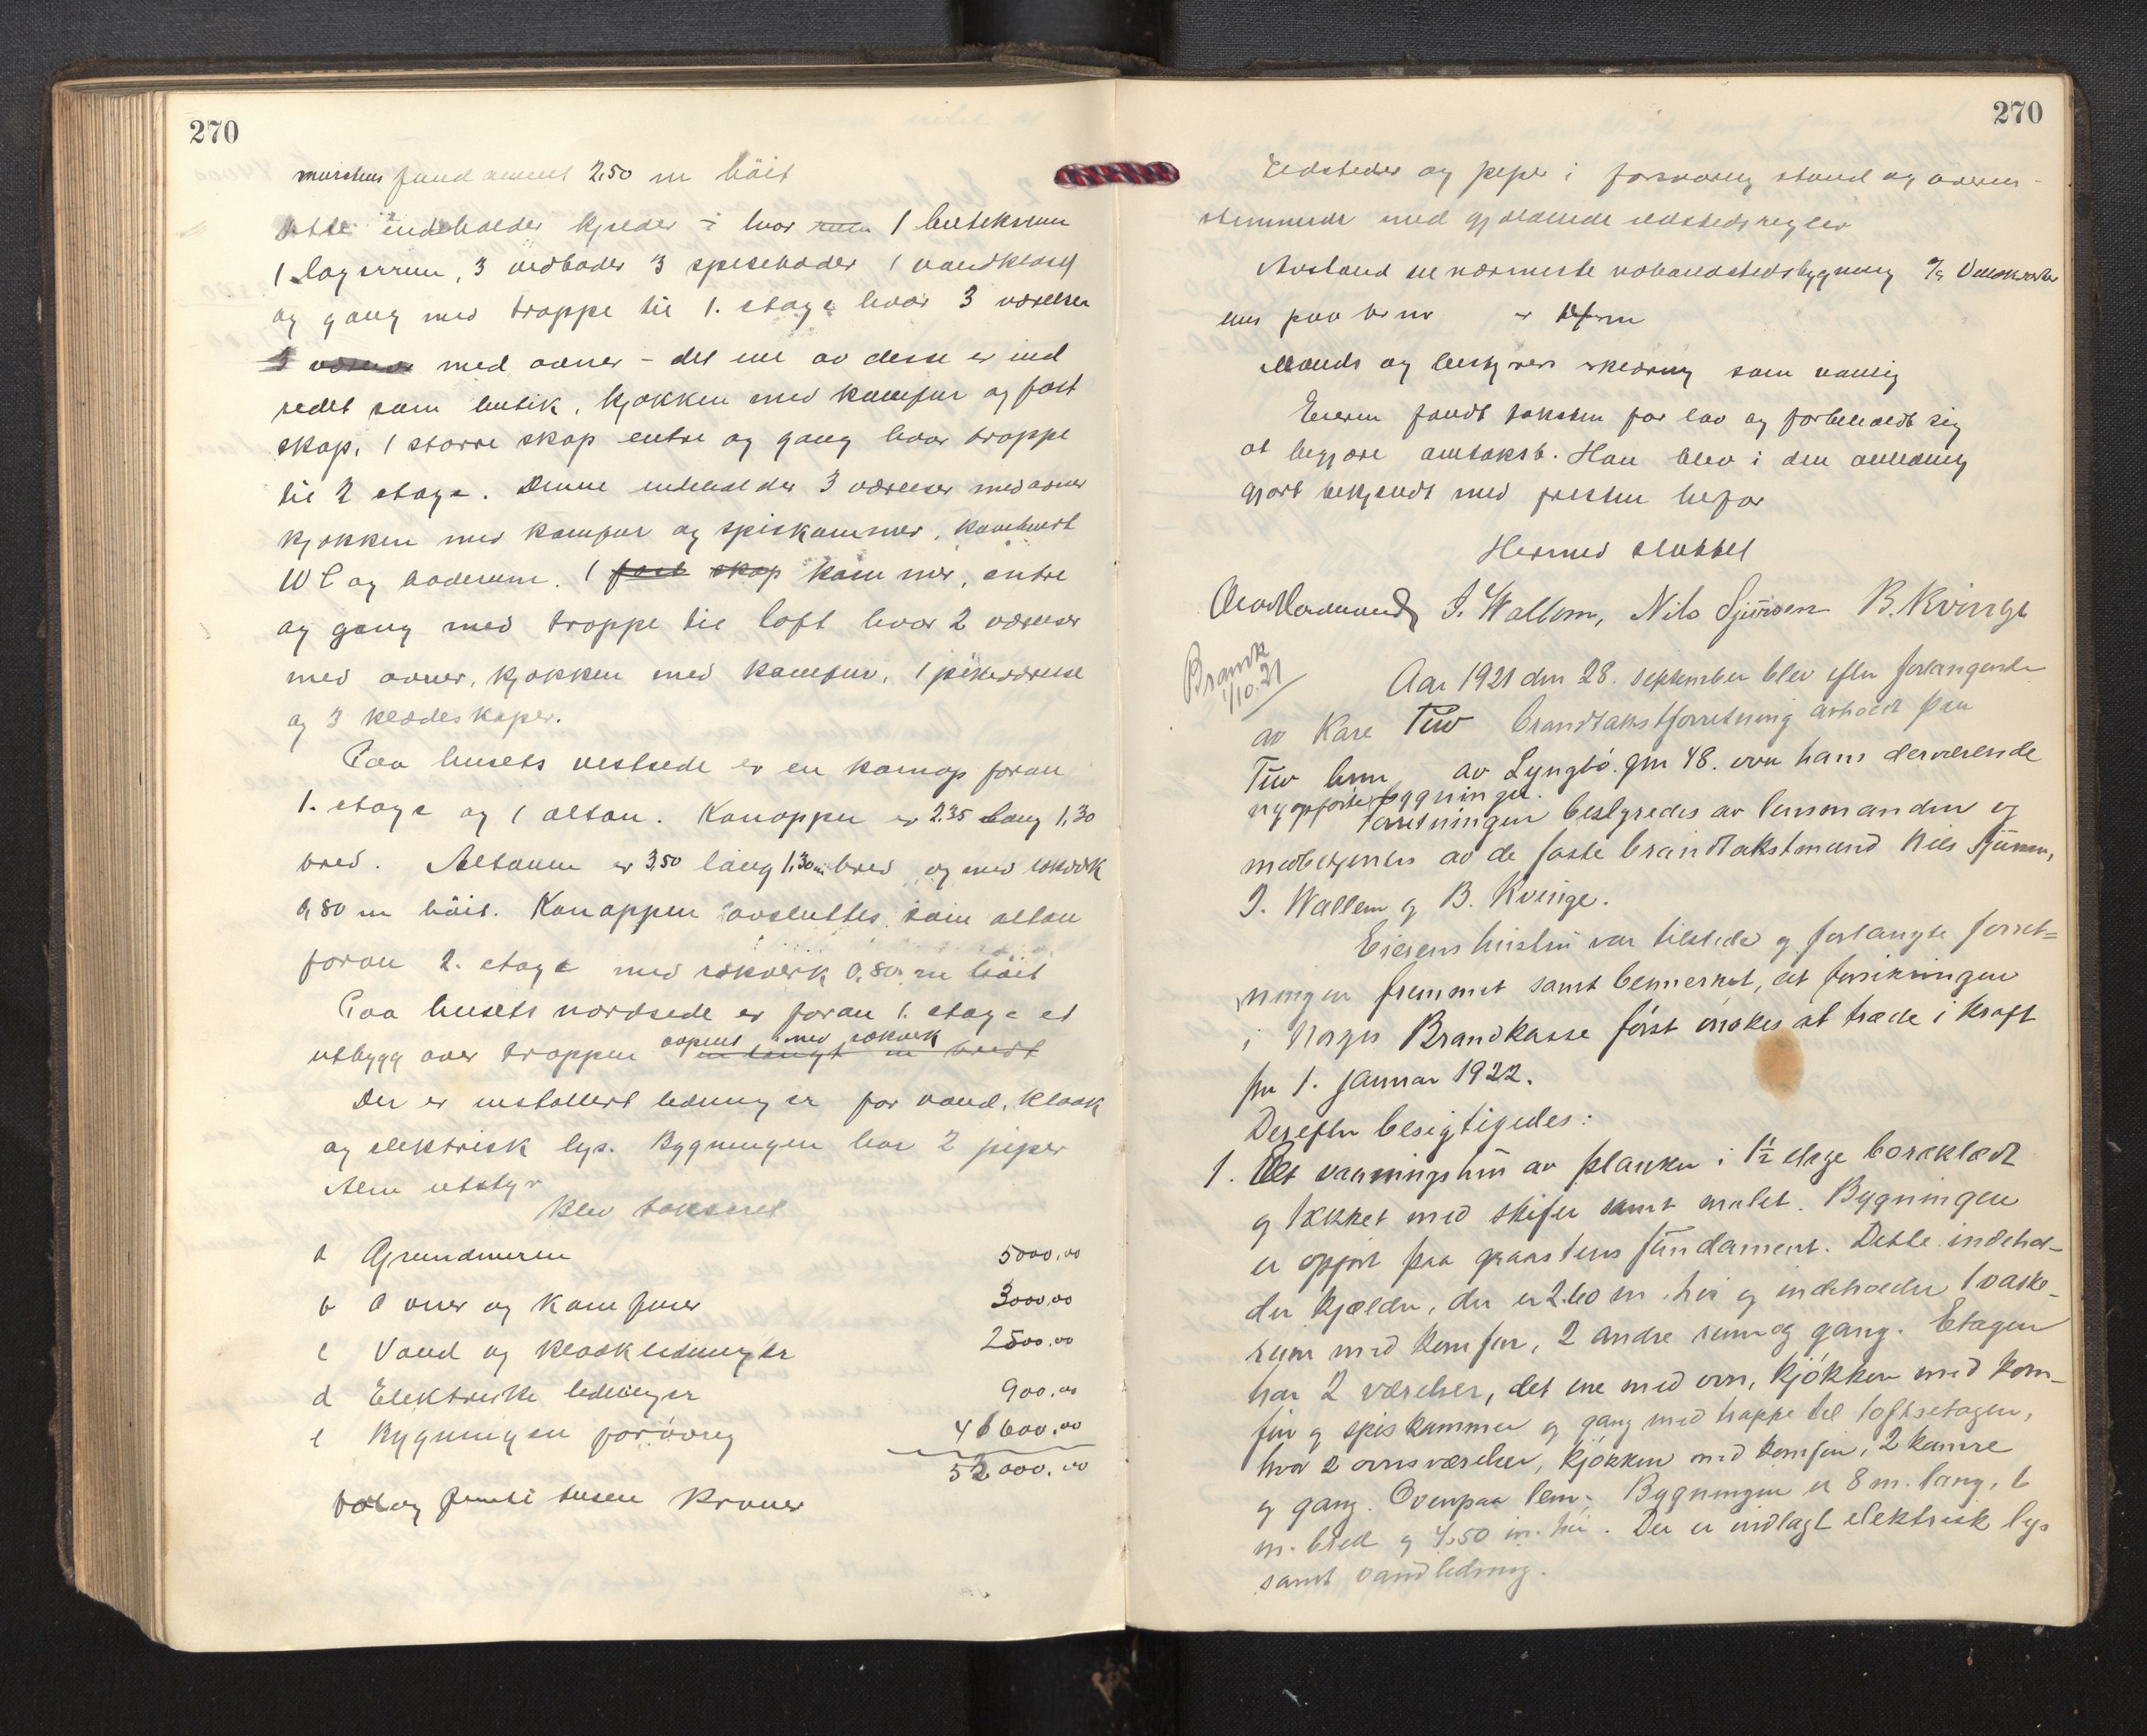 270
murstens fundament 2,50 m höit
Dette indeholder kjelder i hvor rum 1 butiksrum
1 lagerrum, 3 vedboder 3 speseboder 1 vandklosett
og gang med trappe til 1. etage hvor 3 værelser
3 værelser med ovner - det ene av disse er ind
redet som butik, kjøkken med komfur og fast
skap, 1 større skap entre og gang hvor trappe
til 2 etage. Denne indeholder 3 værelser med ovner
kjøkken med komfur og spiskammer, kombinert
WC og baderum. 1 fast skap kammer, entre
og gang med trappe til loft hvor 2 værelser
med ovner, kjøkken med komfur, 1 pikeværelse
og 3 klædeskaper.
Paa husets vestside er en karnap foran
1. etage og 1 altan. Karnappen er 2,35 lang 1,30
bred. Altanen er 3,50 lang 1,30 m bred og med rekværk
0,80 m höit. Karnappen avsluttes som altan
foran 2. etage med rekværk 0,80 m höit
Paa husets nordside er foran 1. etage et
utbygg over trappen aapent med rekværk m langt m bredt
Der er installert ledninger for vand, kloak
og elektrisk lys. Bygningen har 2 piper
Alm utstyr
Blev taksert
a Grundmuren 5000,00
b Ovner og komfurer 3000,00
c Vand og kloakledninger 2500,00
d Elektriske ledninger 900,00
e Bygningen forøvrig 600,00
52 000,00
to og femti tusen Kroner
270
Ildsteder og piper i forsvarlig stand og overens-
stemmende med gjældende ildstedsregler
Avstand til nærmeste nabo
er m
Mands og bestyrers skjønn som vanlig
Eieren fandt taksten for lav og forbeholdt sig
at begjære omtakst. Han blev i den anledning
gjort bekjendt med fristen herfor
Hermed sluttet
J. Wallem, Nils Sjursen B. Kvinge
Brandk
1/10.21
Aar 1921 den 28. september blev efter forlangende
av Kare Tuv brandtakstforretning avholdt paa
Tuv brm av Lyngbö gm 48. over hans derværende
nyopförte bygninger.
Forretningen bestyredes av lensmanden og
medbetjentes av de faste brandtakstmænd Nils Sjursen,
J. Wallem og B. Kvinge.
Eierens hustru var tilstede og forlangte forret=
ningen fremmet samt bemerket, at forsikringen
i Norges Brandkasse först önskes at træde i kraft
fra 1. januar 1922.
Derefter besigtigedes:
1. Et vaaningshus av planker i 1½ etage bordklædt
og tækket med skifer samt malet. Bygningen
er opfört paa graastens fundament. Dette indehol-
der kjælder, der er 2.60 m. höi og indeholder 1 vaske-
rum med komfur, 2 andre rum og gang. Etagen
har 2 værelser, det ene med ovn, kjökken med kom-
fur og spiskammer og gang med trappe til loftsetagen,
hvor 2 ovnsværelser, kjökken med komfur, 2 kamre
og gang. Ovenpaa lem. Bygningen er 8 m. lang, 6
m. bred og 4,50 m. höi. Der er indlagt elektrisk lys
samt vandledning.